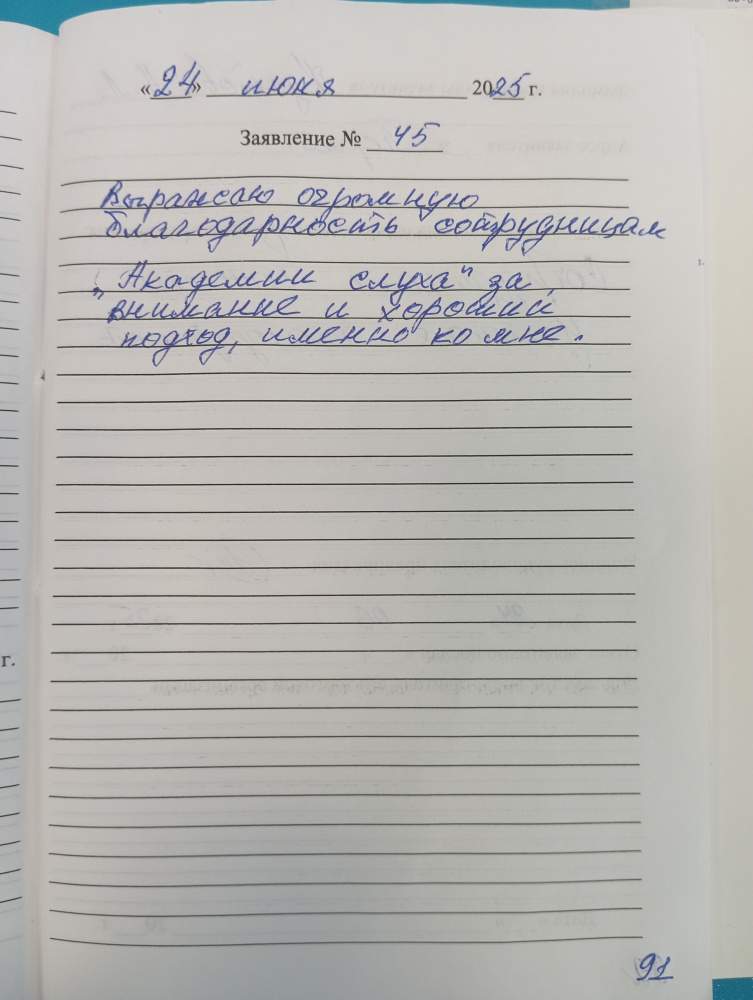 «24» июня 2025 г.
Заявление № 45
Выражаю огромную
благодарность сотрудницам
„Академии слуха" за
внимание и хороший
подход, именно ко мне.
г.
91